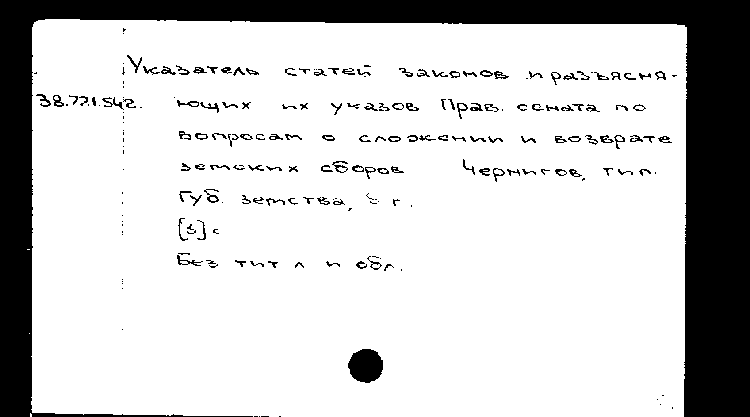 Указатель статей законов и разъясня-
38.771.542. ющих их указов Прав. сената по
вопросам о сложении и возврате
земских сборов Чернигов, тип.
Губ. земства, б г.
[3] с
Без тит л и обл.